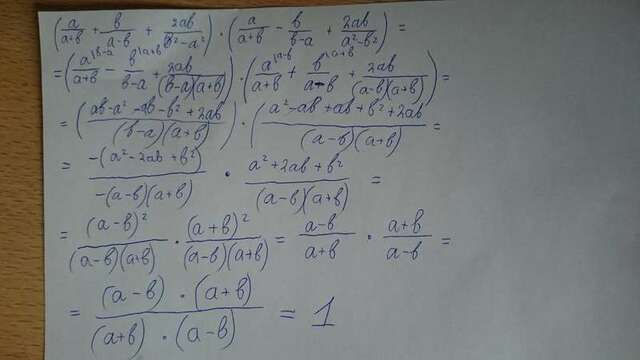 (a/(a+b) + b/(a-b) + 2ab/(b²-a²)) · (a/(a+b) - b/(b-a) + 2ab/(a²-b²)) =
= (a^{|b-a}/(a+b) - b^{|a+b}/(b-a) + 2ab/((b-a)(a+b))) · (a^{|a-b}/(a+b) + b^{|a+b}/(a-b) + 2ab/((a-b)(a+b))) =
= ((ab-a²-ab-b²+2ab)/((b-a)(a+b))) · ((a²-ab+ab+b²+2ab)/((a-b)(a+b))) =
= -(a²-2ab+b²)/(-(a-b)(a+b)) · (a²+2ab+b²)/((a-b)(a+b)) =
= (a-b)²/((a-b)(a+b)) · (a+b)²/((a-b)(a+b)) = (a-b)/(a+b) · (a+b)/(a-b) =
= ((a-b)·(a+b))/((a+b)·(a-b)) = 1